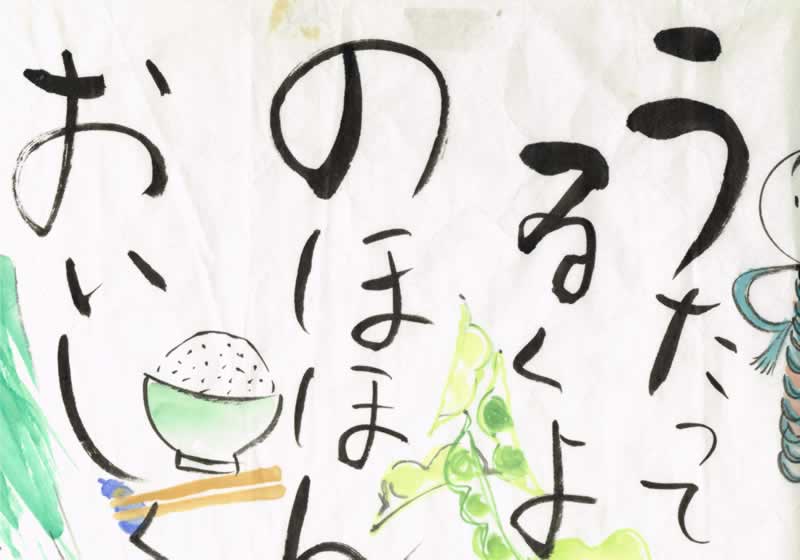 うたって
るくよ
のほほん
おいしく